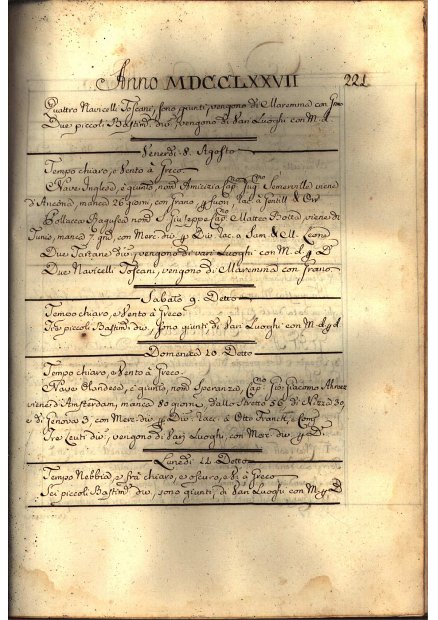 Anno MDCCLXXVII 221
Quattro Navicelli Toscani, sono giunti, vengono di Maremma con
Due piccoli Bastim. div. vengono di Vari Luoghi con M. d.
Venerdi 8. Agosto
Tempo chiaro, e Vento à Greco
Nave Inglese, è giunto, nom. Amicizia Cap. Somerville viene
d'Ancona, manca 26 giorni, con Grano, p fuori, Rac. a Gentill &
Pollacca Ragusea nom. S. Giuseppe Cap. Matteo Botta viene di
Tunis, manca 7. gni, con Merc. div. p Div. Rac. a Leone
Due Tartane div. vengono di vari Luoghi con M. d. p D
Due Navicelli Toscani, vengono di Maremma con Grano
Sabato 9. Detto
Tempo chiaro, e Vento à Greco
Tre piccoli Bastim. div. sono giunti, di Vari Luoghi con M. d. p d.
Domenica 10 Detto
Tempo chiaro, e Vento à Greco
Nave Olandese, è giunto, nom. Speranza, Cap. Gio: Giacomo
viene d'Amsterdam, manca 80 giorni, dallo Stretto 56 di Nizza 30,
e di Genova 3, con Merc. div. p Div. Racc. a Otto Franck, e Com
Tre Leuti div. vengono di Varj Luoghi, con Merc. div. p D.
Lunedi 11 Detto
Tempo Nebbia, e frà chiaro, e oscuro, e V. à Greco
Sei piccoli Bastim. div. sono giunti, di Vari Luoghi con M. p D